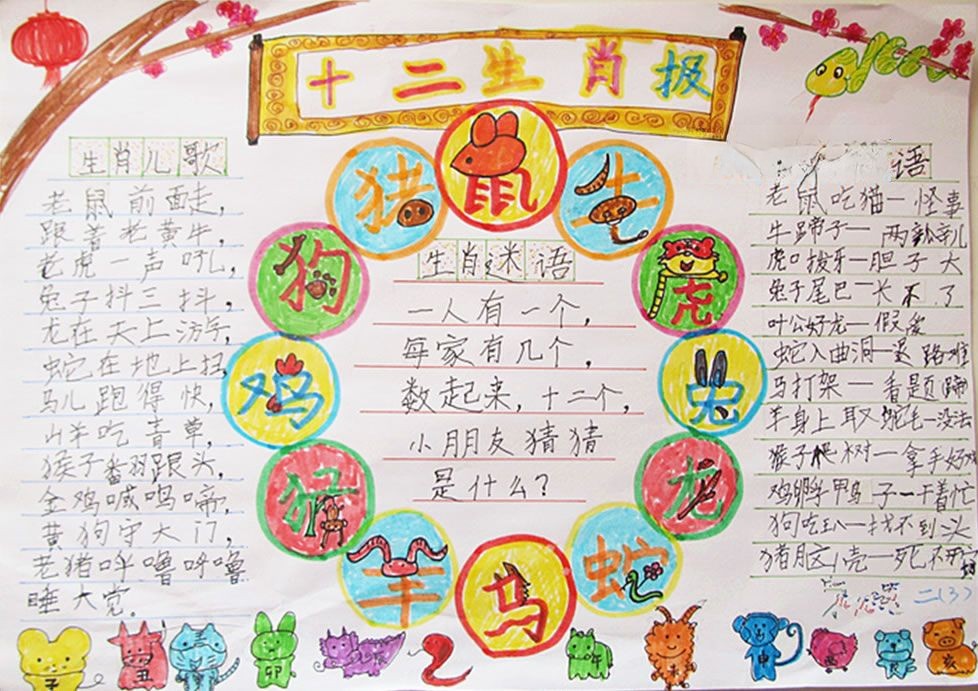 十二生肖报
生肖儿歌
老鼠前面走,
跟着老黄牛,
老虎一声吼,
兔子抖三抖,
龙在天上游,
蛇在地上扭,
马儿跑得快,
山羊吃青草,
猴子翻跟头,
金鸡喊鸣啼,
黄狗守大门,
老猪呼噜呼噜
睡大觉。
鼠
牛
虎
兔
龙
蛇
马
羊
猴
鸡
狗
猪
生肖迷语
一人有一个,
每家有几个,
数起来,十二个,
小朋友猜猜
是什么?
语
老鼠吃猫一怪事
牛蹄子一两瓣儿
虎口拔牙一胆子大
兔子尾巴一长不了
叶公好龙一假爱
蛇入曲洞一退路难
马打架一看题蹄
羊身上取驼毛一没法
猴子爬树一拿手好戏
鸡孵鸭子一干着忙
狗吃一找不到头
猪一死不
二(3)
子
丑
卯
午
未
申
酉
亥